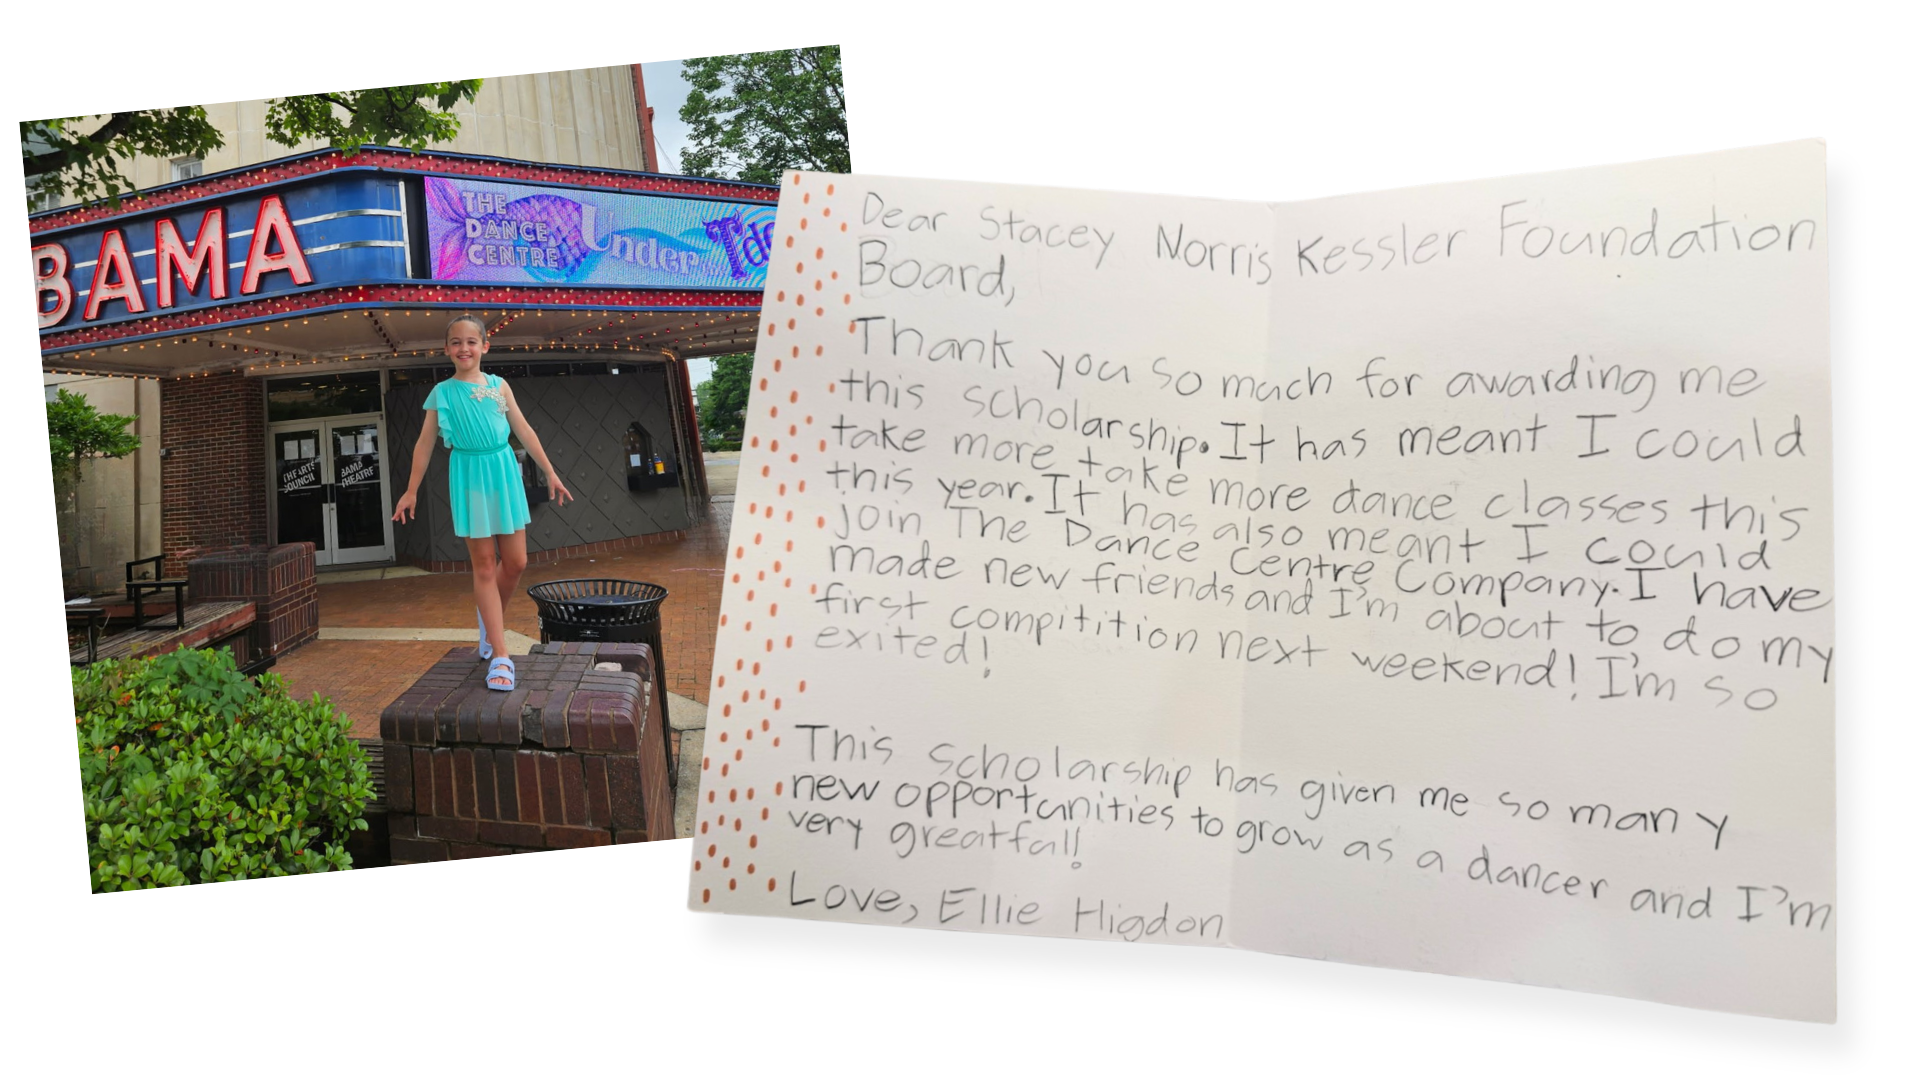 BAMA
THE
DANCE
CENTRE
Under
THE ARTS
COUNCIL
BAMA
THEATRE
Dear Stacey Norris Kessler Foundation
Board,
Thank you so much for awarding me
this scholarship. It has meant I could
take more take more dance classes this
this year. It has also meant I could
join The Dance Centre Company. I have
made new friends and I'm about to do my
first compitition next weekend! I'm so
exited!
This scholarship has given me so many
new opportunities to grow as a dancer and I'm
very greatfull!
Love, Ellie Higdon